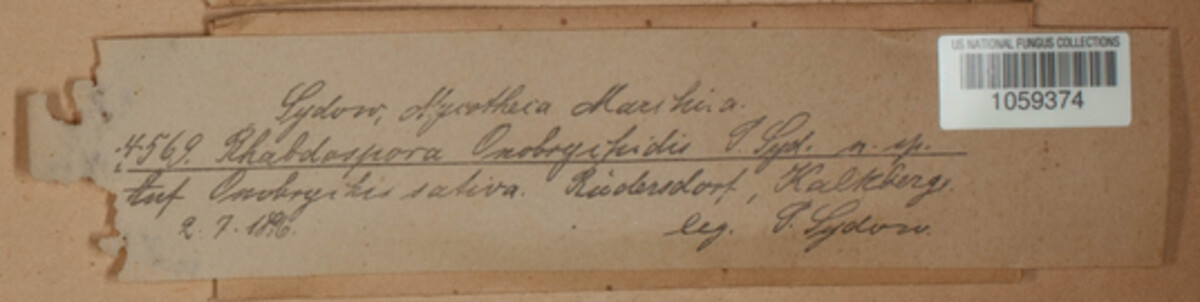 US NATIONAL FUNGUS COLLECTIONS
1059374
Sydow, Mycotheca Marchica.
4569. Rhabdospora Onobrychidis P. Syd. n. sp.
Auf Onobrychis sativa. Rüdersdorf, Kalkberge.
2. 7. 1896.
leg. P. Sydow.